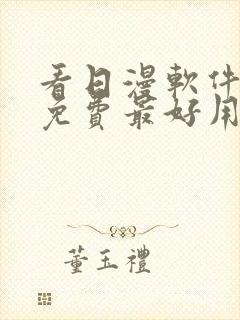 看日漫軟件
免費最好用
董玉禮